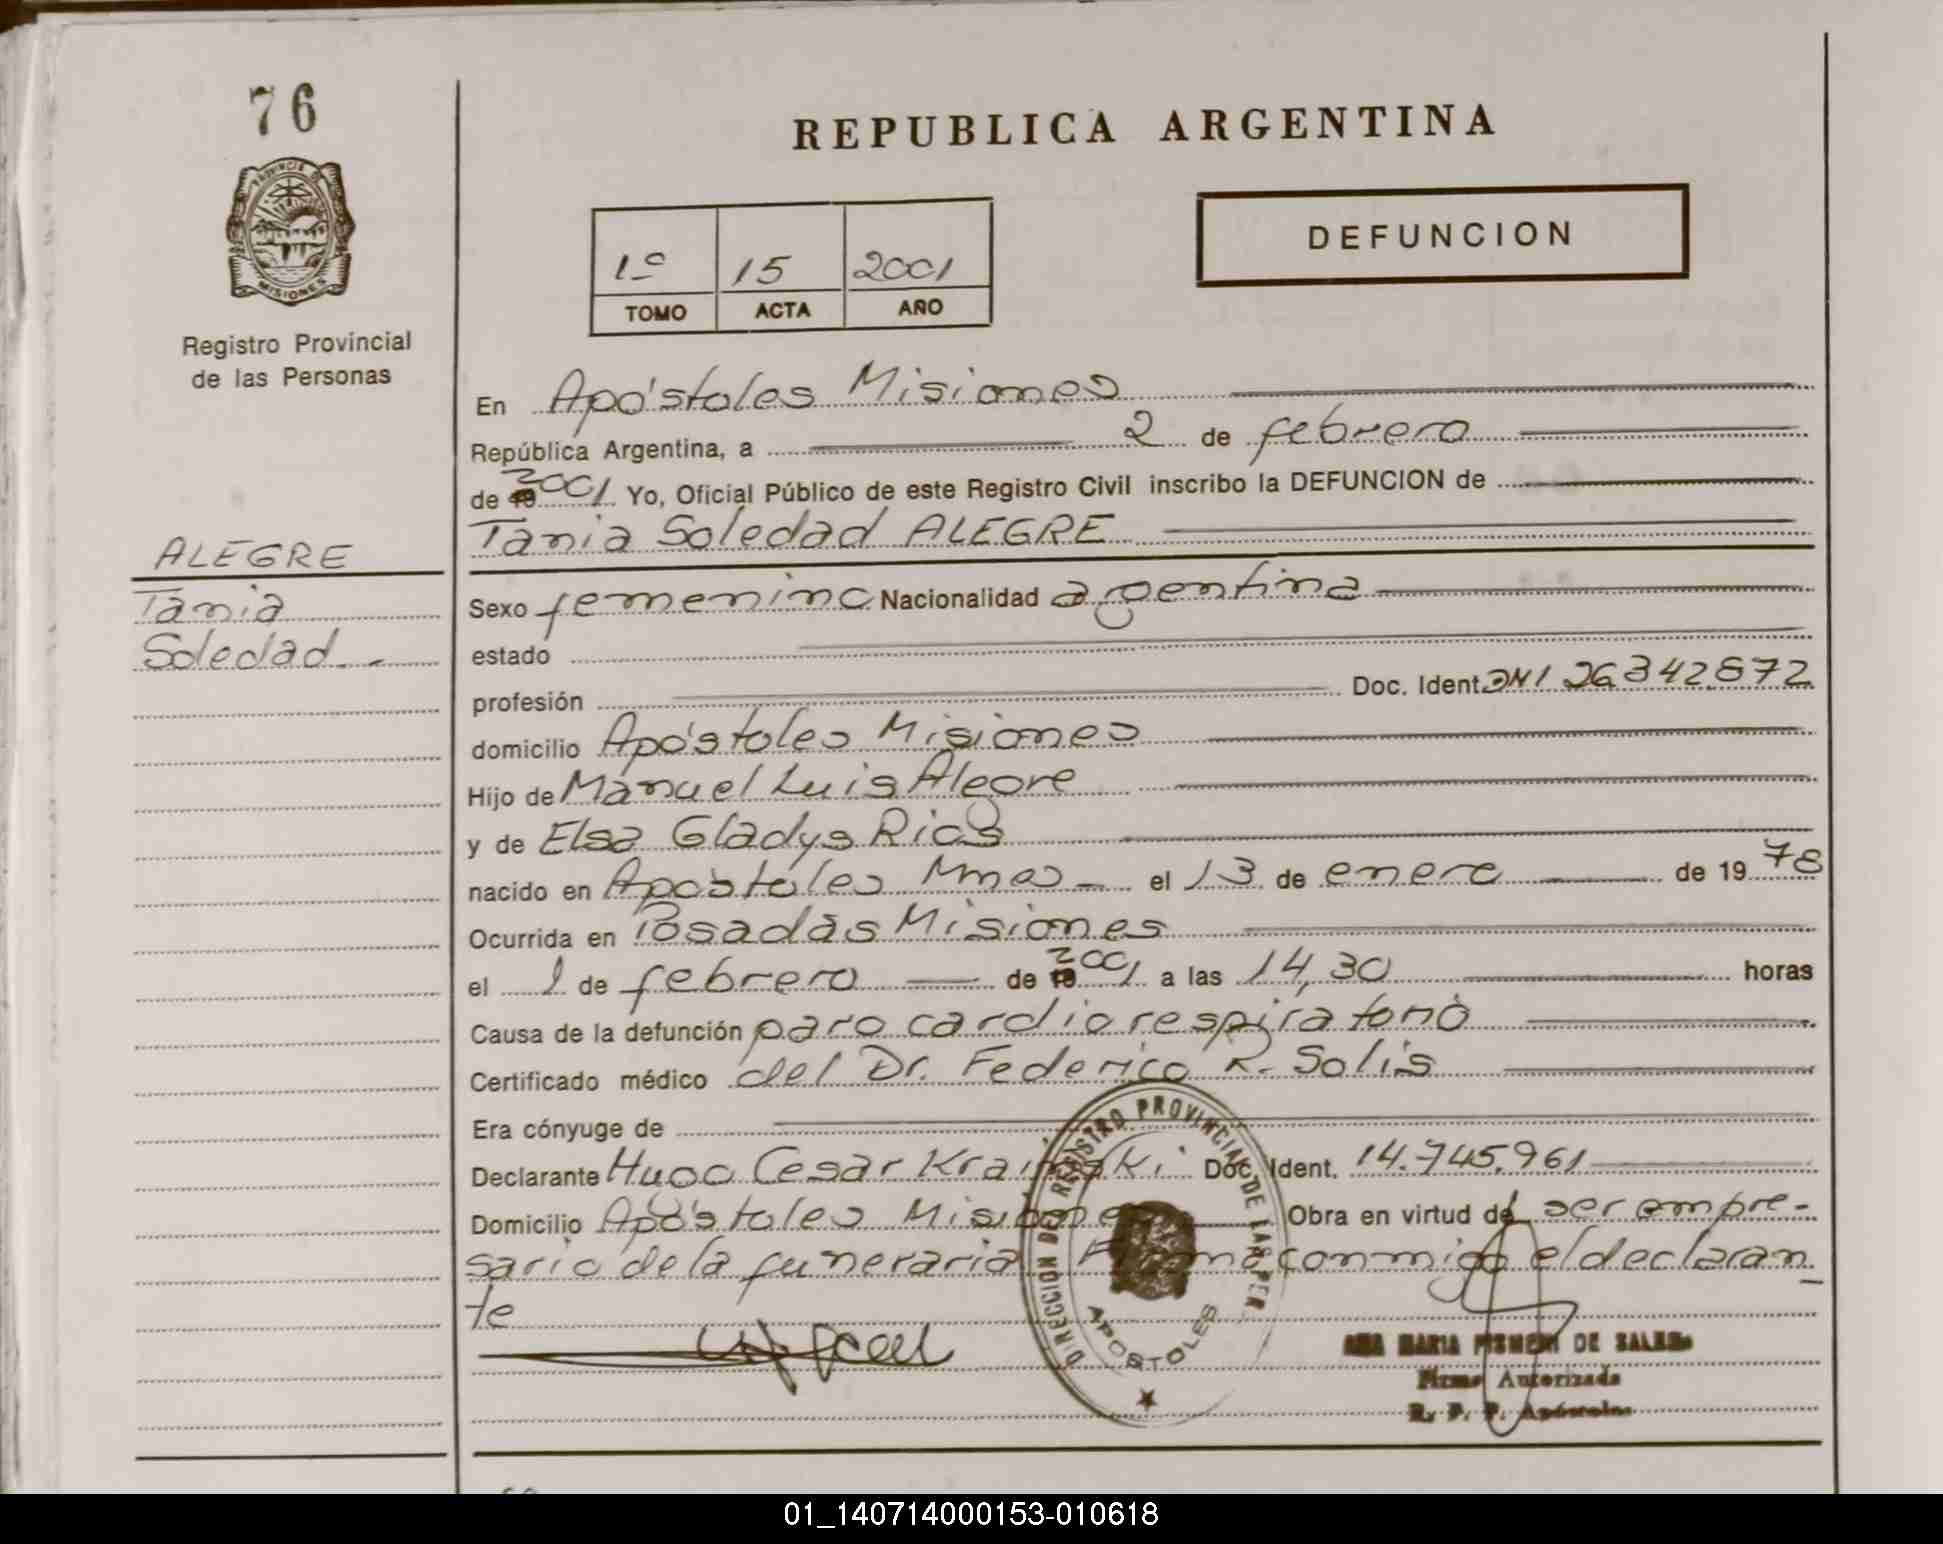 76
PROVINCIA DE
MISIONES
Registro Provincial
de las Personas
ALEGRE
Tania
Soledad.-
REPUBLICA ARGENTINA
DEFUNCION
1º 15 2001
TOMO ACTA AÑO
En Apóstoles Misiones
República Argentina, a 2 de febrero
de 2001 Yo, Oficial Público de este Registro Civil inscribo la DEFUNCION de
Tania Soledad ALEGRE
Sexo femenino Nacionalidad argentina
estado
profesión Doc. Ident. DNI 26.342.872
domicilio Apóstoles Misiones
Hijo de Manuel Luis Alegre
y de Elsa Gladys Rios
nacido en Apóstoles Mnes - el 13 de enero de 1978
Ocurrida en Posadas Misiones
el 1 de febrero de 2001 a las 14,30 horas
Causa de la defunción paro cardiorespiratorio
Certificado médico del Dr. Federico R. Solis
Era cónyuge de
Declarante Hugo Cesar Doc. Ident. 14.745.961
Domicilio Apóstoles Misiones Obra en virtud de ser empre-
sario de la funeraria. Firma conmigo el declaran_
te
DIRECCION DEL REGISTRO PROVINCIAL DE LAS PER.
APOSTOLES
ANA MARIA DE
Firma Autorizada
R. P. P. Apóstoles
01_140714000153-010618